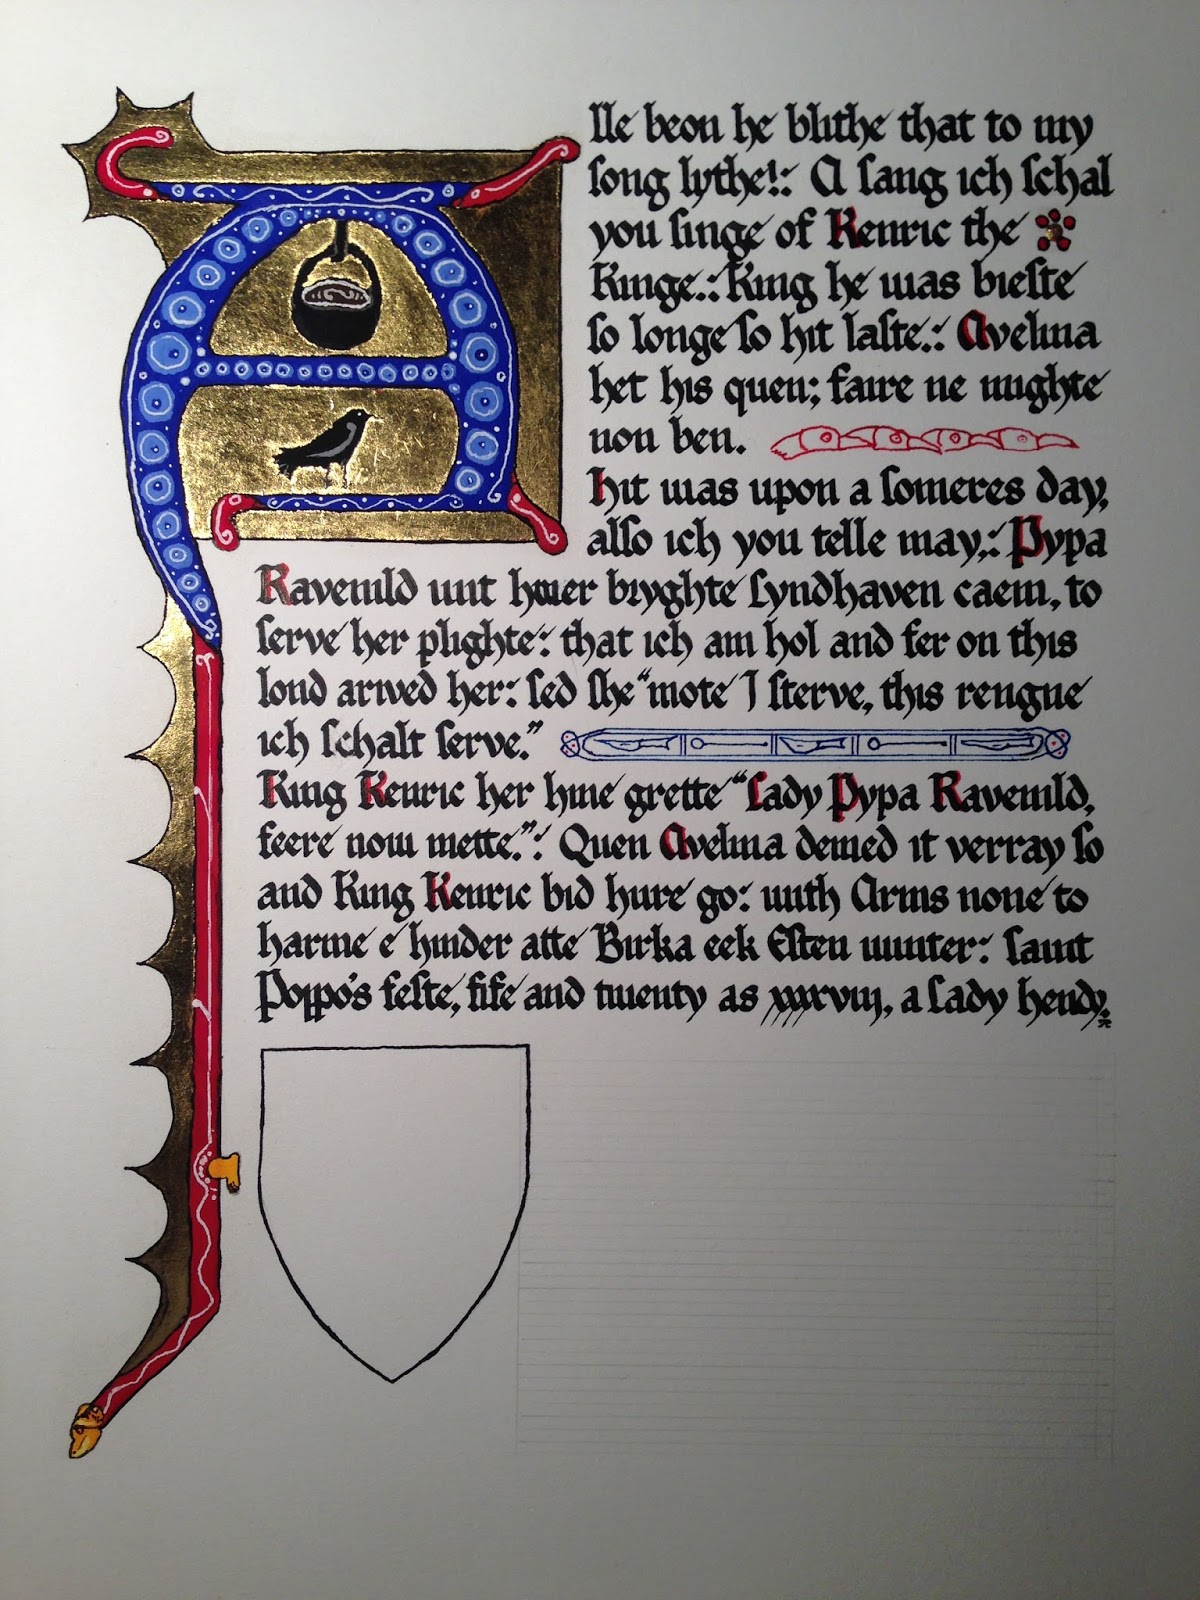 Alle beon he blithe that to my
song lythe!: A sang ich schal
you singe of Kenric the
Kinge.: King he was bieste
so longe so hit laste.: Avelina
het his quen; faire ne mighte
non ben.
Hit was upon a someres day,
also ich you telle may,: Pypa
Ravenild wit hwer bryghte Lyndhaven caem, to
serve her plighte: that ich am hol and fer on this
lond arived her: sed she "mote I sterve, this rengne
ich schalt serve."
King Kenric her hine grette "Lady Pypa Ravenild,
feere now mette.": Quen Avelina demed it verray so
and King Kenric bid hure go: with Arms none to
harme e hinder atte Birka eek Esten winter: saint
Poppo's feste, fife and twenty as xxxxviij, a Lady hendy.